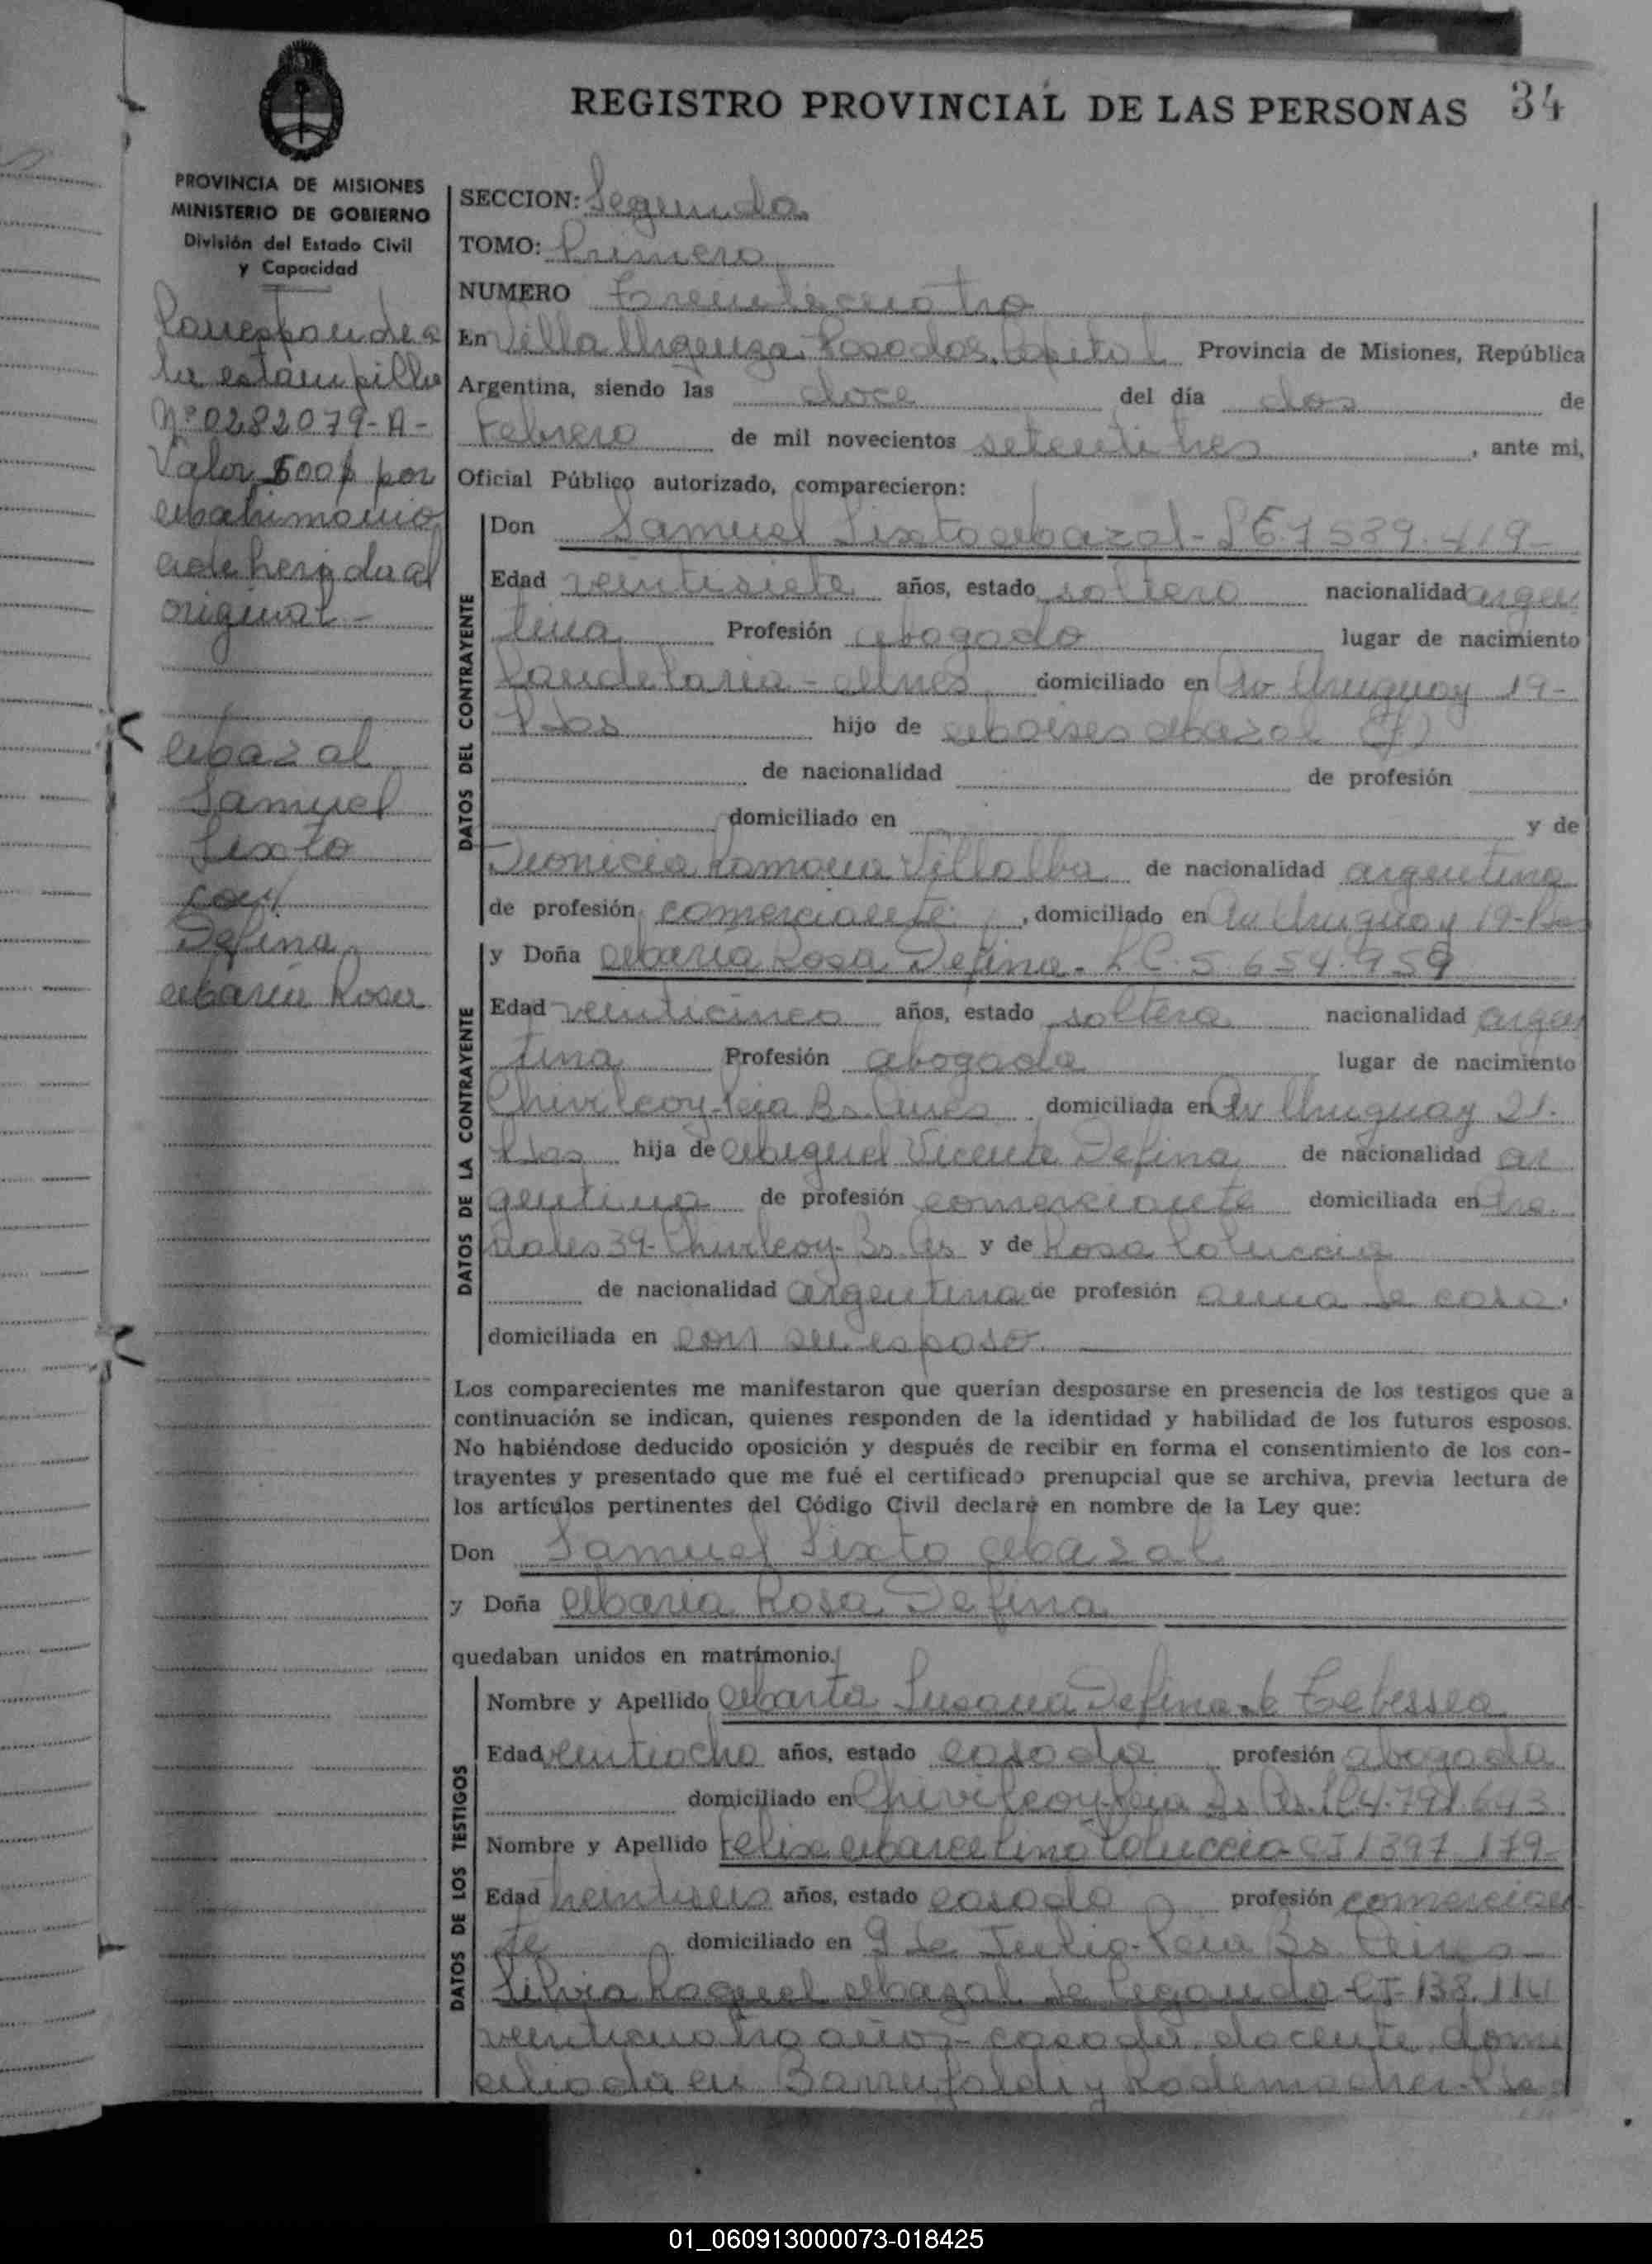 REGISTRO PROVINCIAL DE LAS PERSONAS 34
PROVINCIA DE MISIONES
MINISTERIO DE GOBIERNO
División del Estado Civil
y Capacidad
Corresponde a
la estampilla
Nº 0282079-A-
Valor 500$ por
Matrimonio
adherida al
original-
Mazal
Samuel
Sixto
con
Defina
Maria Rosa
SECCION: Segunda
TOMO: Primero
NUMERO Treinticuatro
En Villa Urquiza, Posadas, Capital Provincia de Misiones, República
Argentina, siendo las doce del día dos de
Febrero de mil novecientos setentitres, ante mi,
Oficial Público autorizado, comparecieron:
DATOS DEL CONTRAYENTE
Don Samuel Sixto Mazal - LE 7.539.419-
Edad veintisiete años, estado soltero nacionalidad argen
tina Profesión abogado lugar de nacimiento
Candelaria - Mnes domiciliado en Av Uruguay 19-
Pdas hijo de Moises Mazal (f)
de nacionalidad de profesión
domiciliado en y de
Dionicia Ramona Villalba de nacionalidad argentina
de profesión comerciante, domiciliado en Av Uruguay 19-Pdas
DATOS DE LA CONTRAYENTE
y Doña Maria Rosa Defina - LC. 5.654.959
Edad veinticinco años, estado soltera nacionalidad argen
tina Profesión abogada lugar de nacimiento
Chivilcoy-Pcia Bs. Aires domiciliada en Av Uruguay 21.
Pdas hija de Miguel Vicente Defina de nacionalidad ar
gentina de profesión comerciante domiciliada en
39- Chivilcoy- Bs. As y de Rosa Coluccia
de nacionalidad argentina de profesión ama de casa,
domiciliada en con su esposo.
Los comparecientes me manifestaron que querían desposarse en presencia de los testigos que a
continuación se indican, quienes responden de la identidad y habilidad de los futuros esposos.
No habiéndose deducido oposición y después de recibir en forma el consentimiento de los con-
trayentes y presentado que me fué el certificado prenupcial que se archiva, previa lectura de
los artículos pertinentes del Código Civil declaré en nombre de la Ley que:
Don Samuel Sixto Mazal
y Doña Maria Rosa Defina
quedaban unidos en matrimonio.
DATOS DE LOS TESTIGOS
Nombre y Apellido Marta Susana Defina de
Edad veintiocho años, estado casada profesión abogada
domiciliado en Chivilcoy-Pcia Bs As. LC 4.791.643
Nombre y Apellido Felix Marcelino Coluccia CI 1397 179-
Edad años, estado casado profesión comercian
te domiciliado en 9 de Julio-Pcia Bs. Aires-
Silvia Raquel Mazal de CI- 138.114
veinticuatro años - casada, docente, domi
ciliada en Barrufaldi y Rademacher-Pdas
01_060913000073-018425